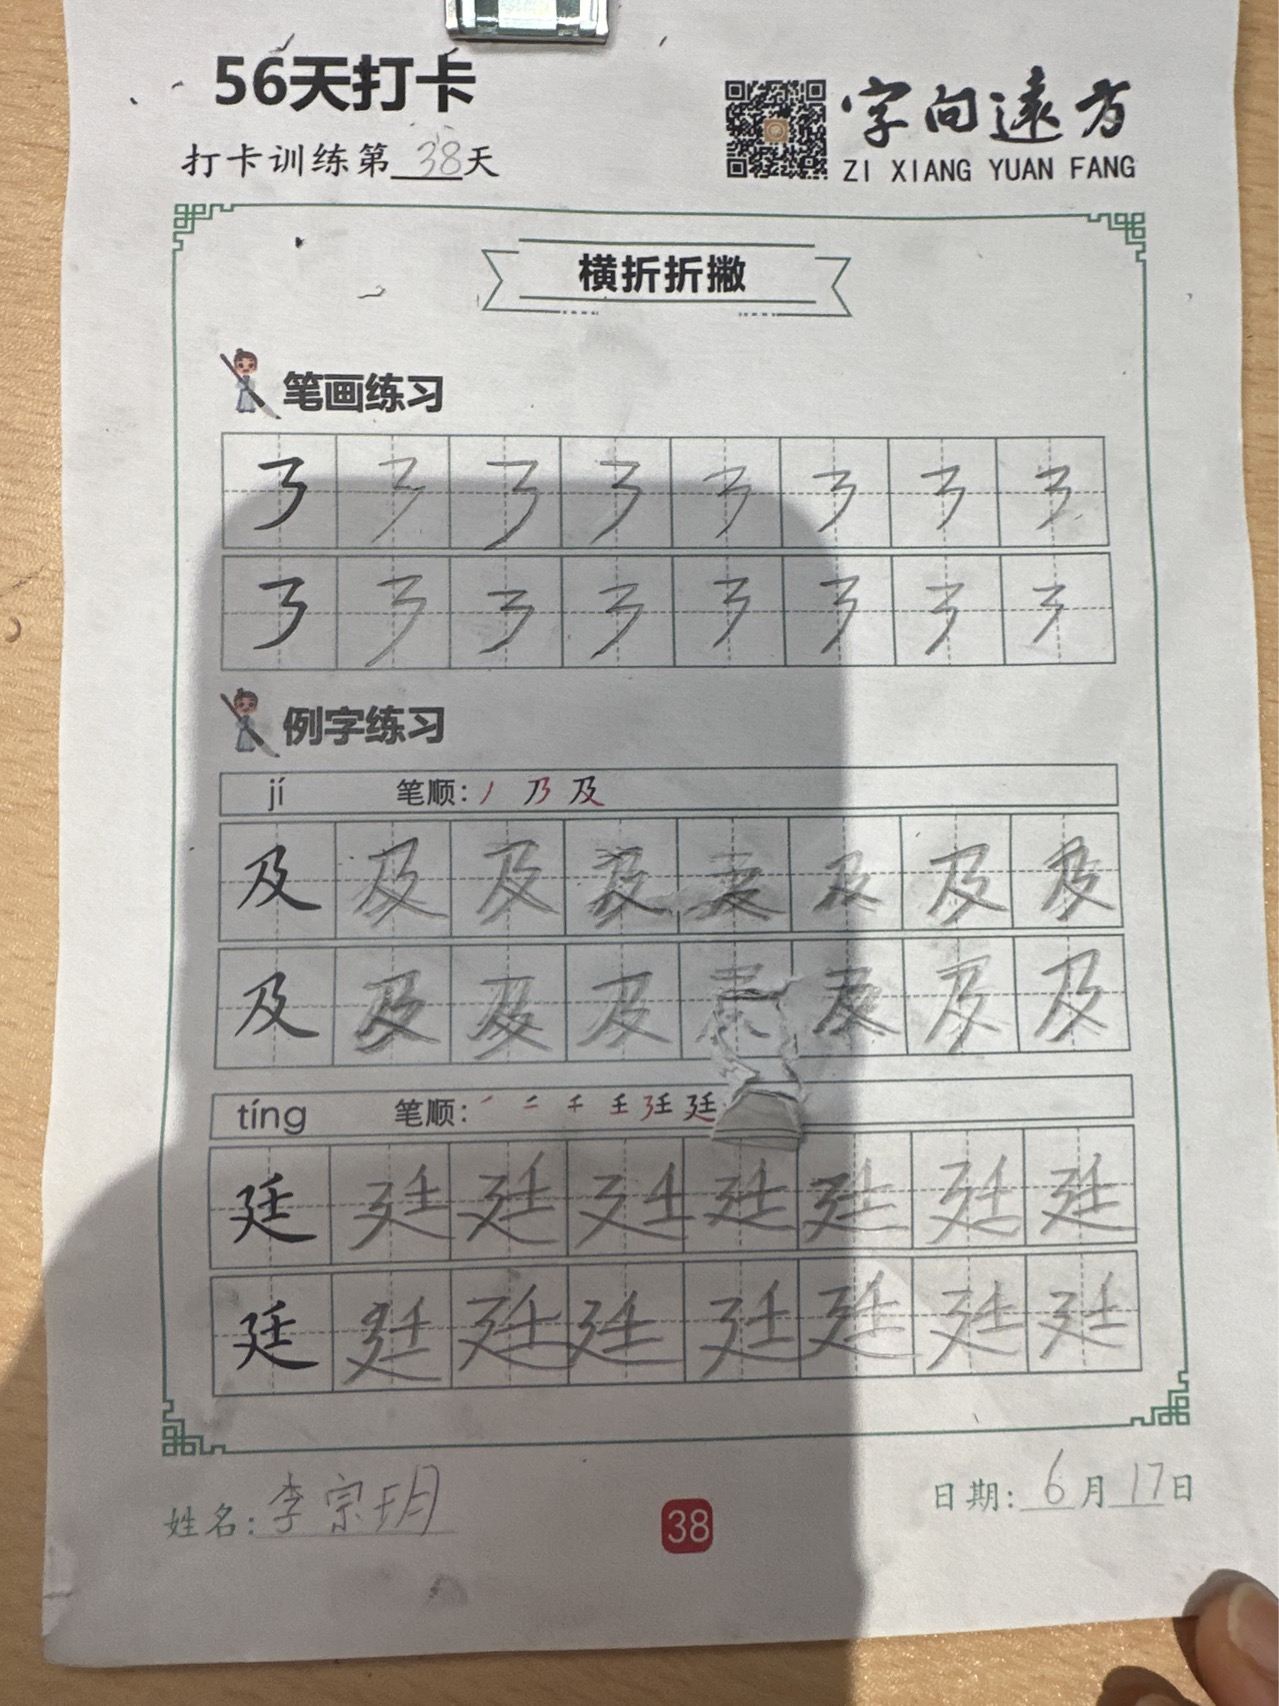 56天打卡
打卡训练第38天
字向遠方
ZI XIANG YUAN FANG
横折折撇
笔画练习
㇋ ㇋ ㇋ ㇋ ㇋ ㇋ ㇋ ㇋
㇋ ㇋ ㇋ ㇋ ㇋ ㇋ ㇋ ㇋
例字练习
jí 笔顺: 丿 乃 及
及 及 及 及 及 及 及 及
及 及 及 及 及 及 及
tíng 笔顺: ㇒ 二 千 壬 廷
廷 廷 廷 廷 廷 廷 廷 廷
廷 廷 廷 廷 廷 廷 廷 廷
姓名: 李宗玥
38
日期: 6月17日